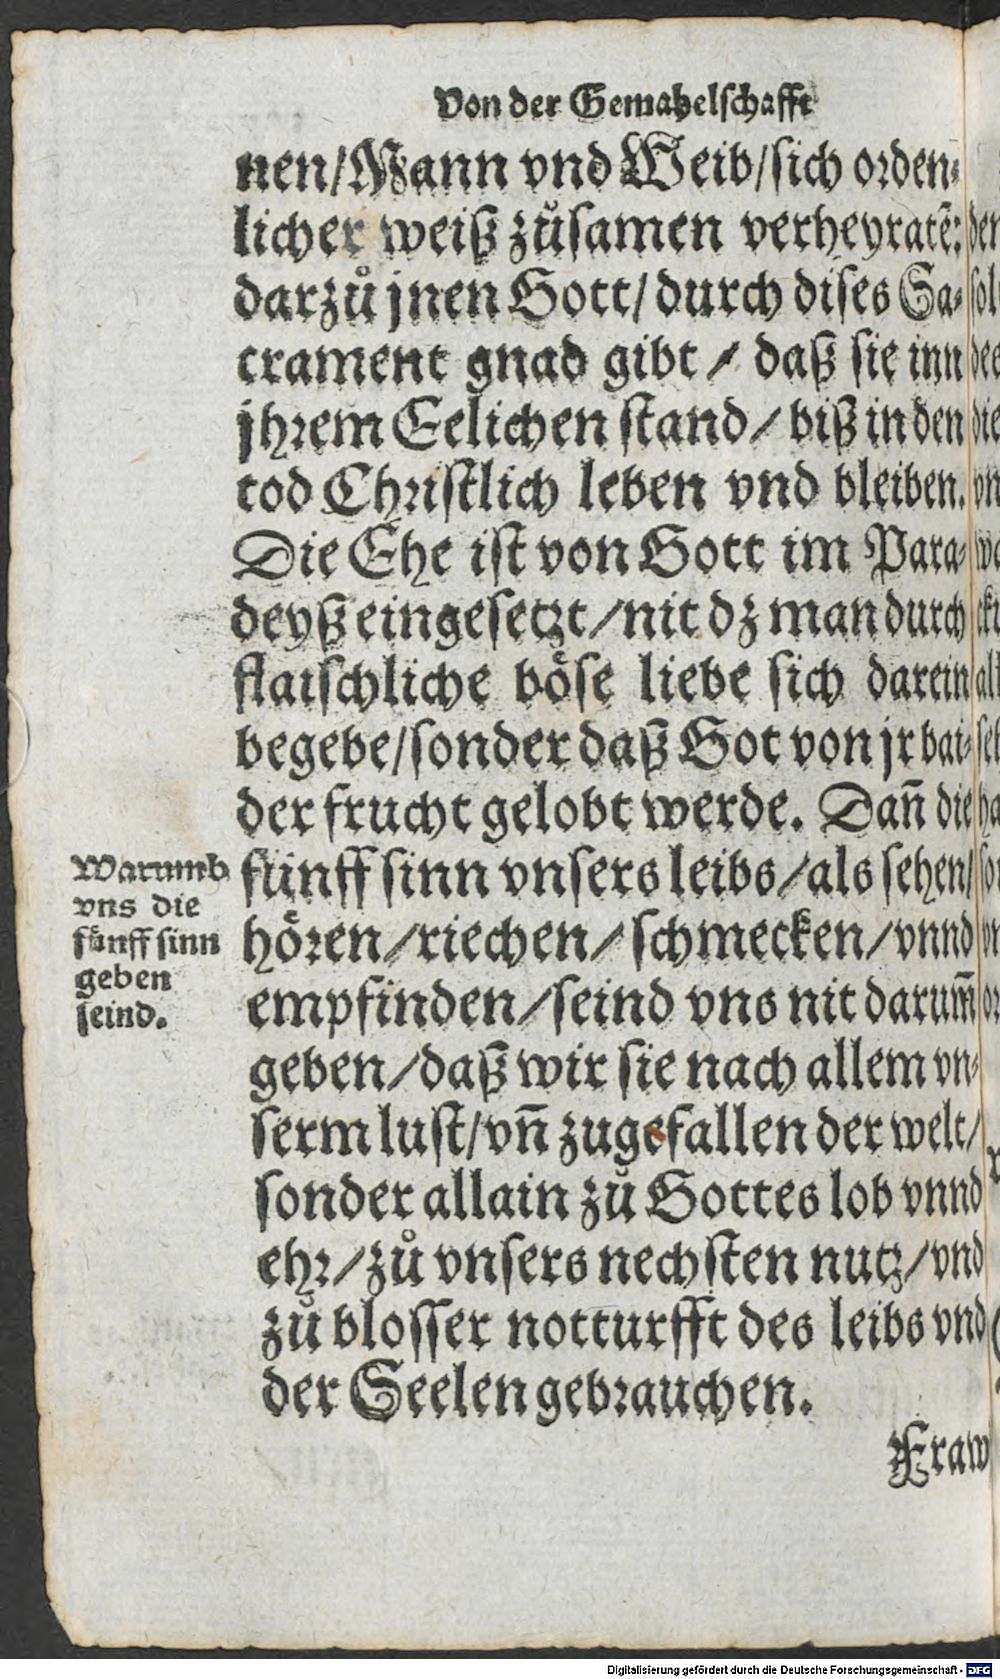 Von der Gemahelschafft
nen/Mann vnd Weib/sich orden⸗
licher weiß zůsamen verheyratẽ:
darzů jnen Gott/durch dises Sa⸗
crament gnad gibt / daß sie inn
jhrem Eelichen stand/ biß in den
tod Christlich leben vnd bleiben.
Die Ehe ist von Gott im Para⸗
deyß eingesetzt/nit dz man durch
flaischliche böse liebe sich darein
begebe/sonder daß Got von jr bai⸗
der frucht gelobt werde. Dañ die
fünff sinn vnsers leibs/als sehen/
hören/riechen/schmecken/vnnd
empfinden/seind vns nit darum̃
geben/daß wir sie nach allem vn⸗
serm lust/vñ zugefallen der welt/
sonder allain zů Gottes lob vnnd
ehr/zů vnsers nechsten nutz/vnd
zů blosser notturfft des leibs vnd
der Seelen gebrauchen.
Fraw
Warumb
vns die
fünff sinn
geben
seind.
Digitalisierung gefördert durch die Deutsche Forschungsgemeinschaft - DFG